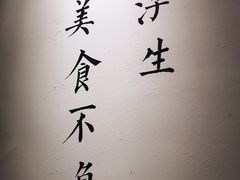 浮生
美食不负